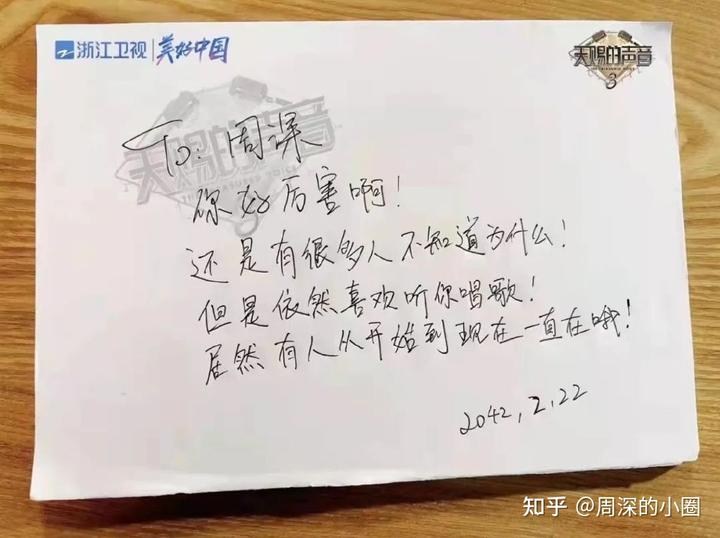 浙江卫视 | 美好中国
天赐的声音3
天赐的声音
To: 周深
你好厉害啊！
还是有很多人不知道为什么！
但是依然喜欢听你唱歌！
居然有人从开始到现在一直在哦！
2042.2.22
知乎 @周深的小圈